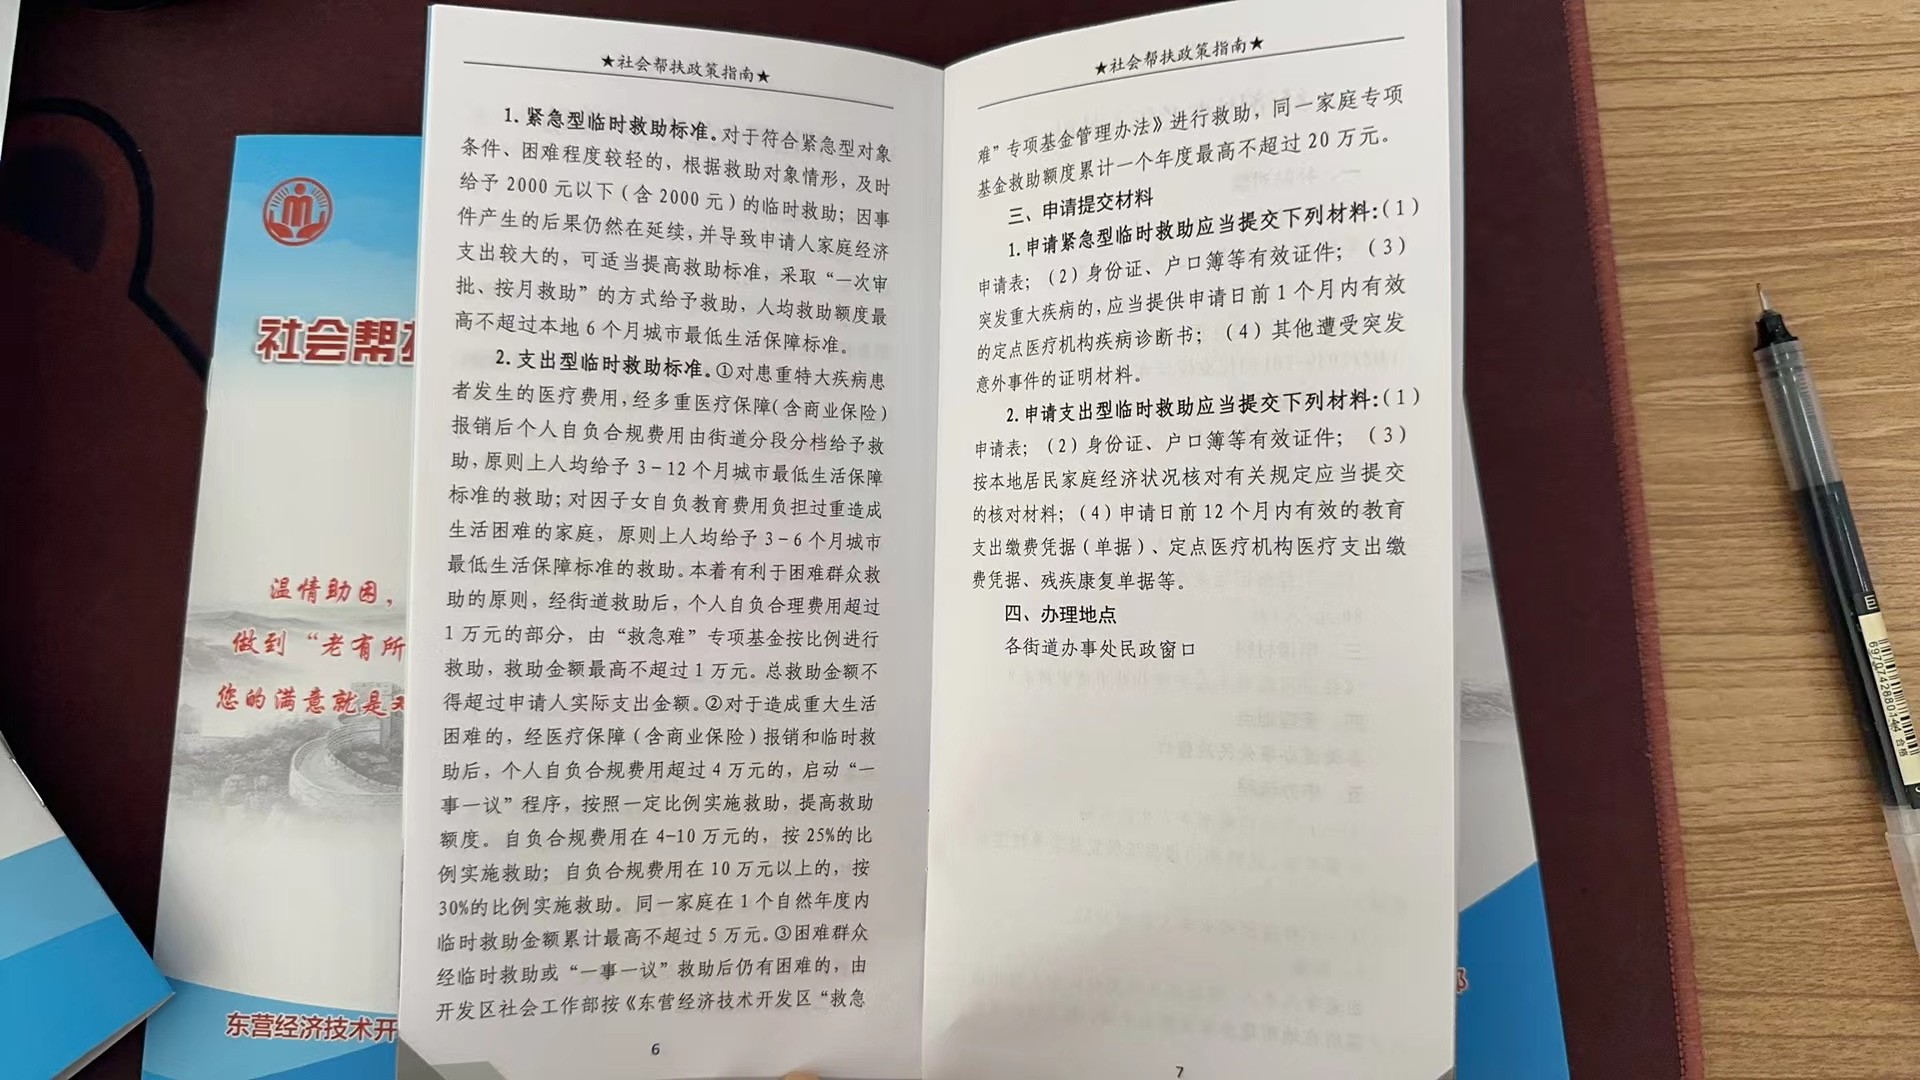 ★社会帮扶政策指南★
1.紧急型临时救助标准。对于符合紧急型对象
条件、困难程度较轻的，根据救助对象情形，及时
给予2000元以下（含2000元）的临时救助；因事
件产生的后果仍然在延续，并导致申请人家庭经济
支出较大的，可适当提高救助标准，采取“一次审
批、按月救助”的方式给予救助，人均救助额度最
高不超过本地6个月城市最低生活保障标准。
2.支出型临时救助标准。①对患重特大疾病患
者发生的医疗费用，经多重医疗保障（含商业保险）
报销后个人自负合规费用由街道分段分档给予救
助，原则上人均给予3-12个月城市最低生活保障
标准的救助；对因子女自负教育费用负担过重造成
生活困难的家庭，原则上人均给予3-6个月城市
最低生活保障标准的救助。本着有利于困难群众救
助的原则，经街道救助后，个人自负合理费用超过
1万元的部分，由“救急难”专项基金按比例进行
救助，救助金额最高不超过1万元。总救助金额不
得超过申请人实际支出金额。②对于造成重大生活
困难的，经医疗保障（含商业保险）报销和临时救
助后，个人自负合规费用超过4万元的，启动“一
事一议”程序，按照一定比例实施救助，提高救助
额度。自负合规费用在4-10万元的，按25%的比
例实施救助；自负合规费用在10万元以上的，按
30%的比例实施救助。同一家庭在1个自然年度内
临时救助金额累计最高不超过5万元。③困难群众
经临时救助或“一事一议”救助后仍有困难的，由
开发区社会工作部按《东营经济技术开发区“救急
6
★社会帮扶政策指南★
难”专项基金管理办法》进行救助，同一家庭专项
基金救助额度累计一个年度最高不超过20万元。
三、申请提交材料
1.申请紧急型临时救助应当提交下列材料：（1）
申请表；（2）身份证、户口簿等有效证件；（3）
突发重大疾病的，应当提供申请日前1个月内有效
的定点医疗机构疾病诊断书；（4）其他遭受突发
意外事件的证明材料。
2.申请支出型临时救助应当提交下列材料：（1）
申请表；（2）身份证、户口簿等有效证件；（3）
按本地居民家庭经济状况核对有关规定应当提交
的核对材料；（4）申请日前12个月内有效的教育
支出缴费凭据（单据）、定点医疗机构医疗支出缴
费凭据、残疾康复单据等。
四、办理地点
各街道办事处民政窗口
7
社会帮
温情助困，
做到“老有所
您的满意就是
东营经济技术开
部
6970742880144
合格